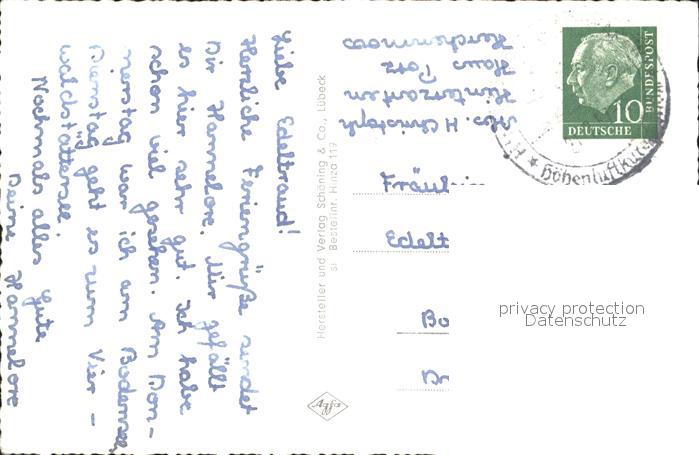 Liebe Edeltraud!
Herzliche Feriengrüße sendet
Dir Hannelore. Mir gefällt
es hier sehr gut. Ich habe
schon viel gesehen. Am Don-
nerstag war ich am Bodensee.
Dienstag geht es zum Vier-
waldstättersee.
Nochmals alles Gute
Deine Hannelore
Abs. H. Christoph
Hinterzarten
Haus Torz
Hersteller und Verlag Schöning & Co., Lübeck
Bestellnr. Hinza 119
Agfa
10
BUNDESPOST
DEUTSCHE
Höhenluftkur
Fräul
Edelt
Bo
privacy protection
Datenschutz